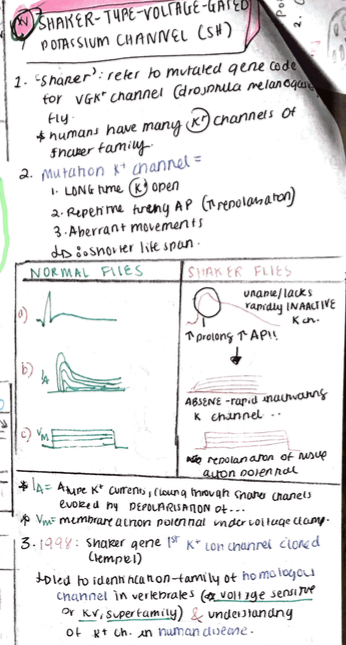 SHAKER-TYPE-VOLTAGE-GATED
POTASSIUM CHANNEL (SH)
1. "Shaker": refer to mutated gene code
for VGK+ channel (drosophila melanogaster
fly.
* humans have many K+ channels of
shaker family.
2. Mutation K+ channel =
1. LONG time K+ open
2. Repetime AP (↑ repolarisation)
3. Aberrant movements
↳ ∴ shorter life span.
NORMAL FLIES
SHAKER FLIES
a)
unable/lacks
rapidly INACTIVE
K ch.
↑ prolong ↑ AP!!
b) IA
ABSENE - rapid inactivating
K channel ..
c) VM
repolarisation of
action potential
* IA = A type K+ currents, flowing through shaker channels
evoked by DEPOLARISATION of...
* Vm = membrane action potential under voltage clamp.
3. 1998: Shaker gene 1st K+ ion channel cloned
(Tempel)
↳ led to identification - family of homologous
channel in vertebrates (voltage sensitive
or KV, superfamily) & understanding
of K+ ch. in human disease.